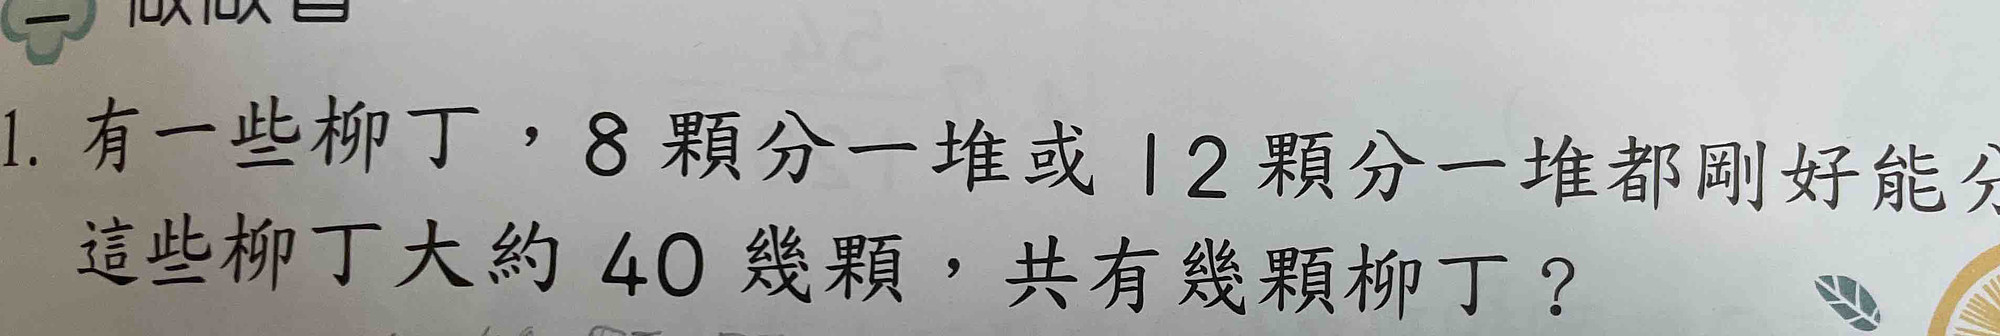 1. 有一些柳丁，8 顆分一堆或 12 顆分一堆都剛好能分
這些柳丁大約 40 幾顆，共有幾顆柳丁？